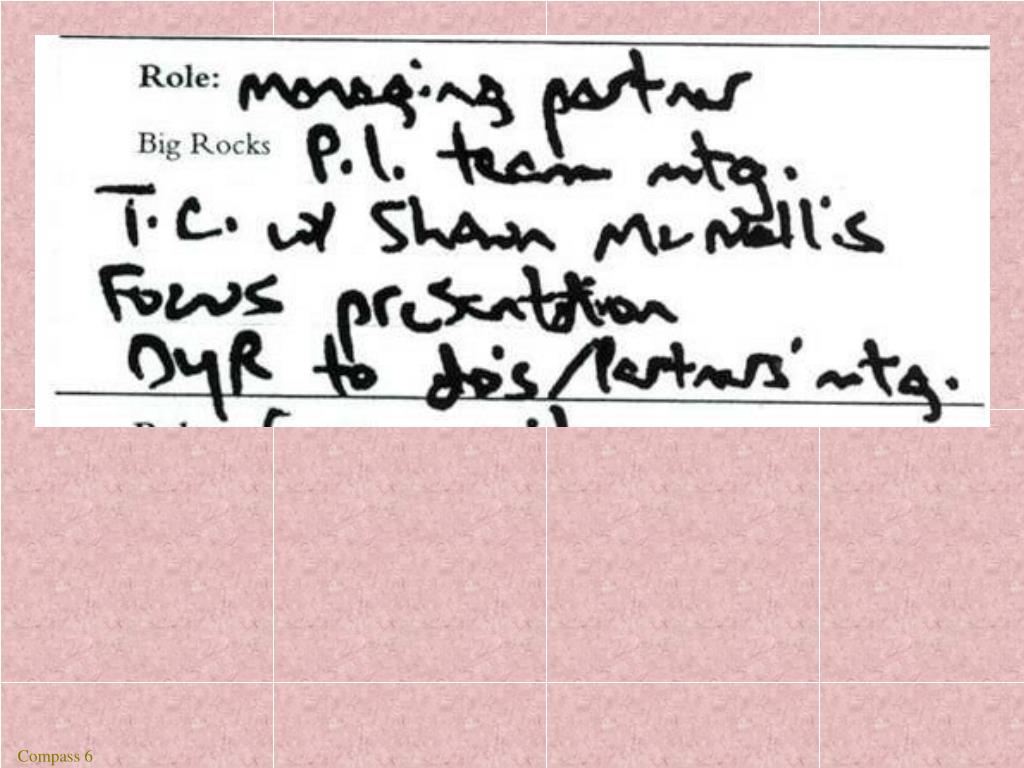 Role: managing partner
Big Rocks P.I. team mtg.
T.C. w/ Shawn McNallis
Focus presentation
DYR to do's/Partners' mtg.
Compass 6